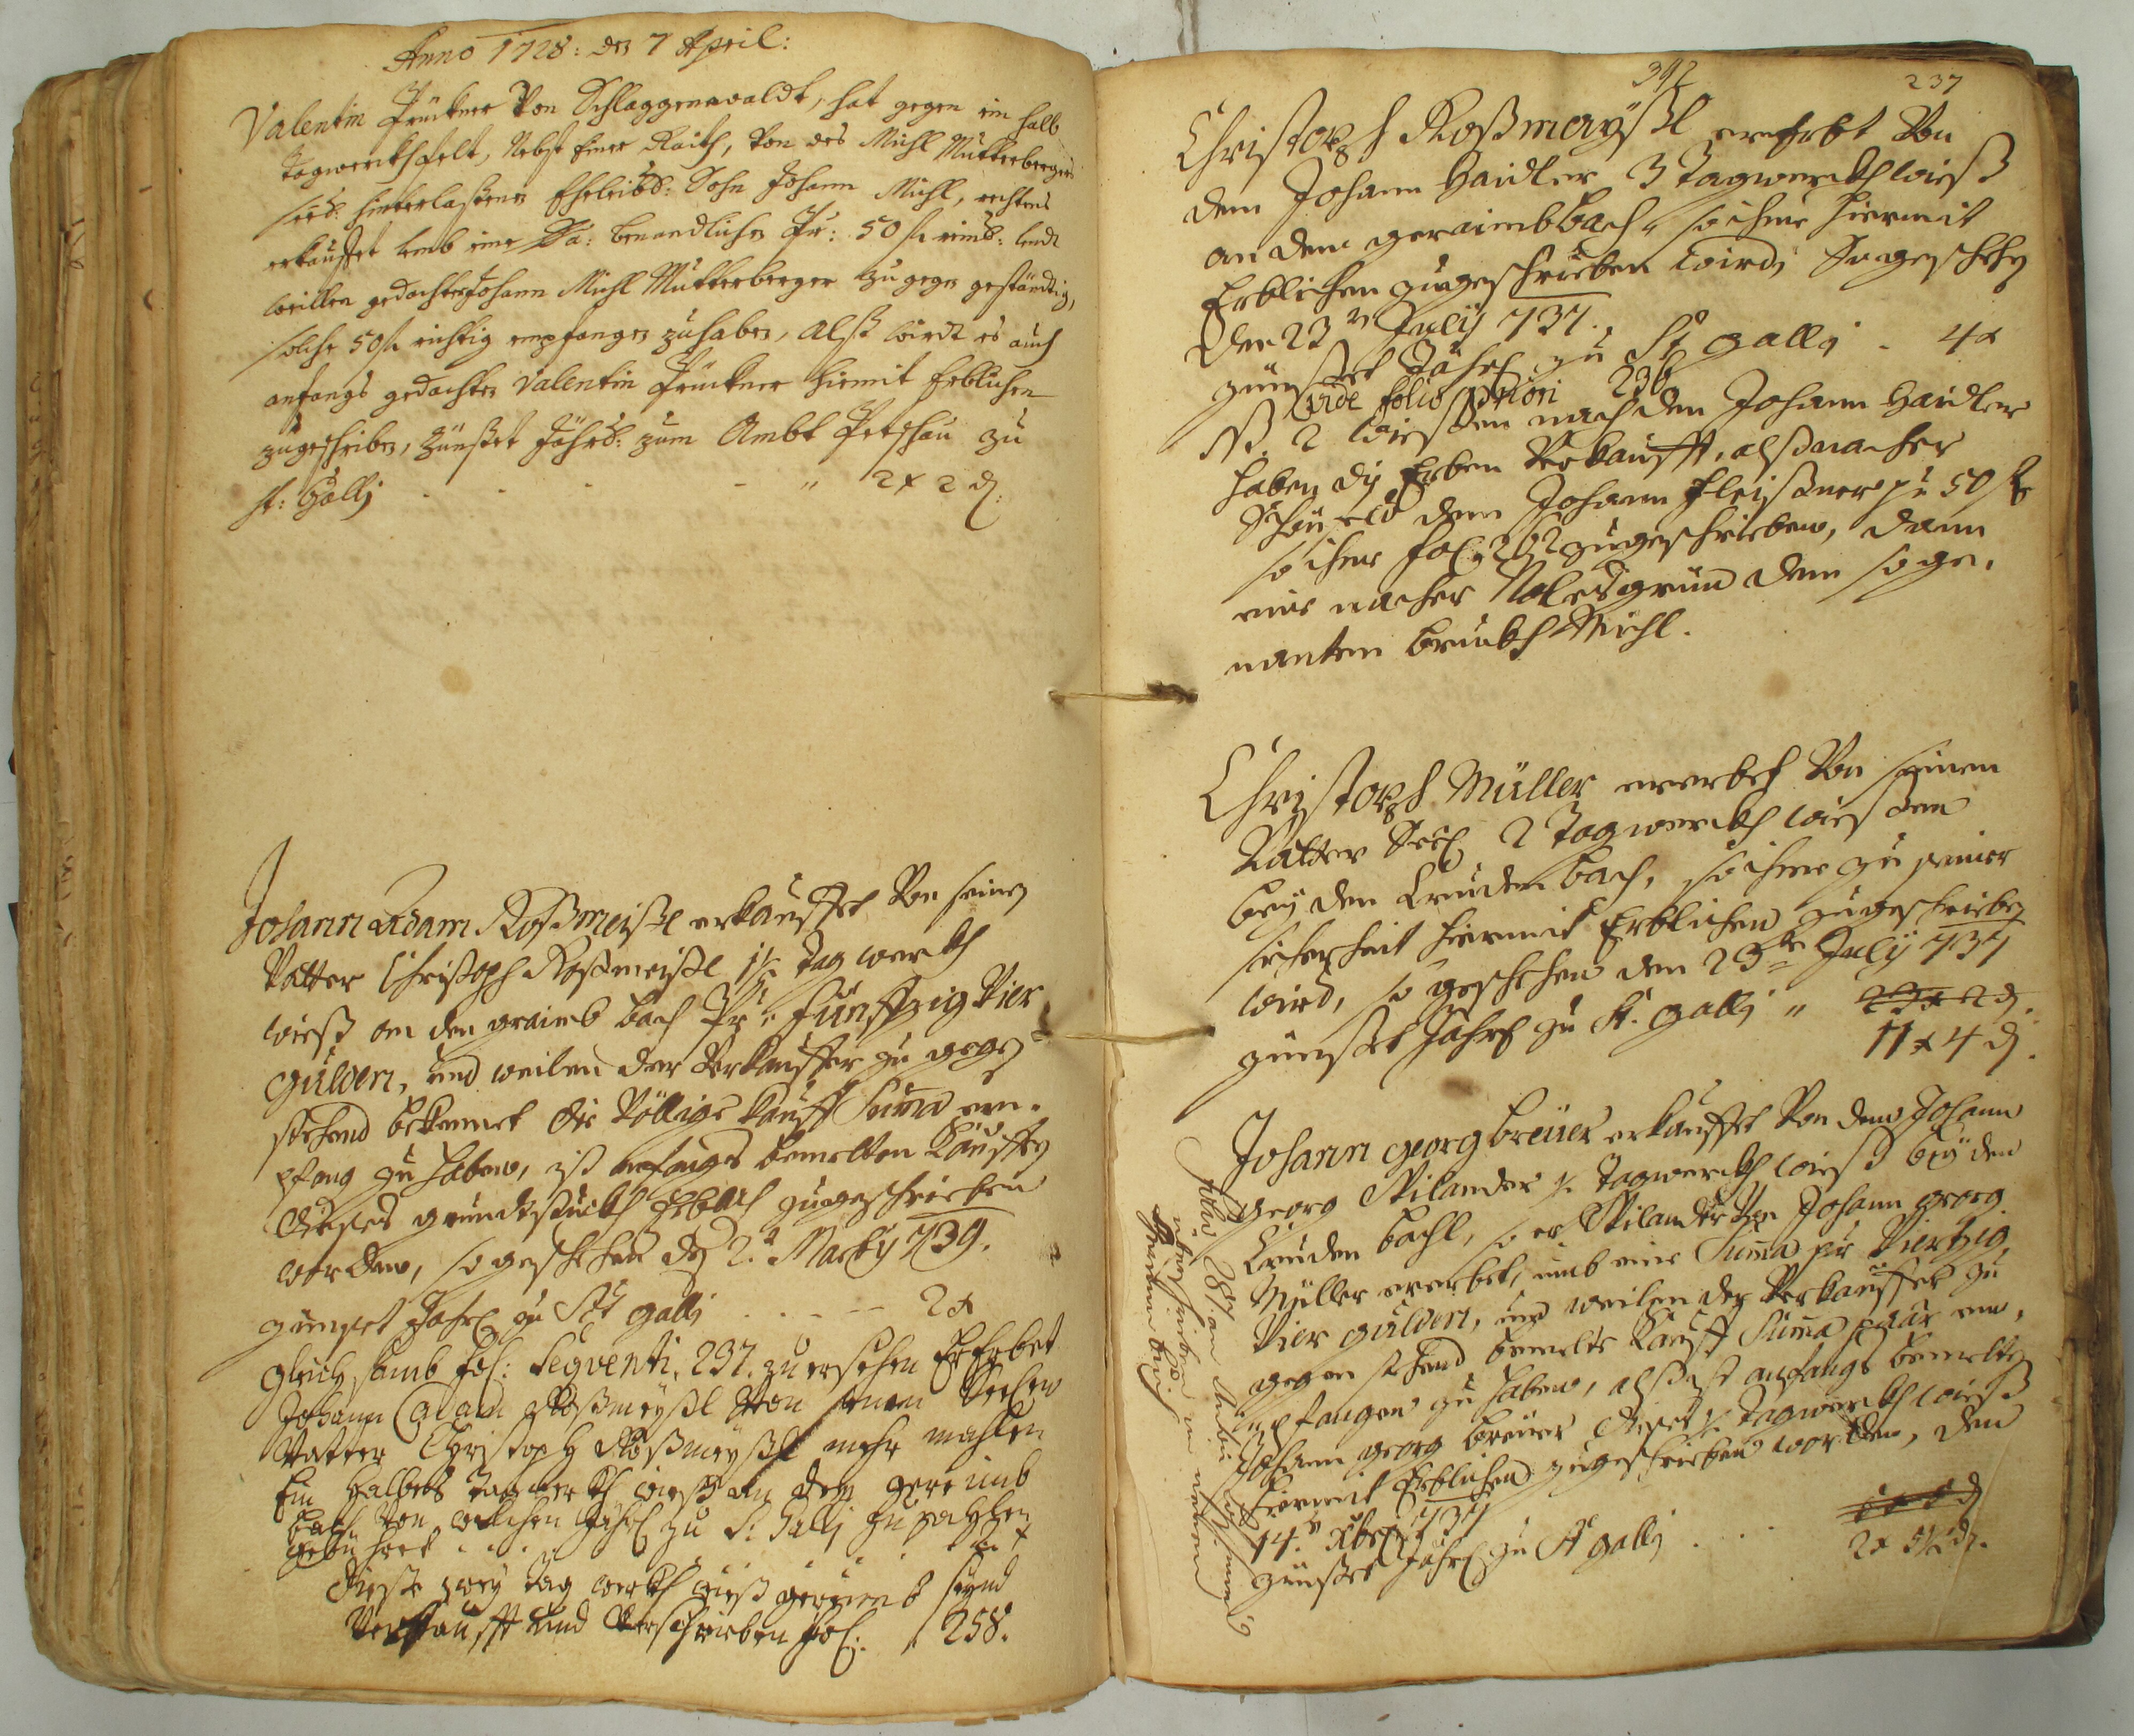 Anno 1728: den 7 April:
Valentin Prückner Von Schlaggenwaldt, hat gegen ein halb
tagwerckhfelt, Nebst einer Raith, von des Michl Mutterbergers
seel: hinterlaßenen Eheleibl: Sohn Johann Michl, rechtens
erkauffet umb eine Sa: benandlichen Pr: 50 fl rein: undt
weillen gedachter Johann Michl Mutterberger zugegen geständig,
solche 50 fl richtig empfangen zuhaben, alß wirdt es auch
anfangs gedachten Valentin Prückner hiemit Erblichen
zugeschriben, Zünßet Jährl: zum Ambt Petschau zu
st: Gallj - - - " 2 x 2 d:
Johann Adam Roßmeißl erkauffet Von seinen
Vatter Christoph Roßmeißl 1½ tag werckh
wieß an den graimb bach Pr: Fünffzig Vier
gulden, und weilen der Verkauffer zu gegen
stehend bekennet die Völlige Kauff Suma em-
pfang zu haben, ist anfangs bemelten Kauffer
dießes grundtstückh Erblich zugeschrieben
worden, so geschehen den 2. Martij 739.
zünset Jährl zu St: gallj - - - 2 x
gleich samb fol: Seqventi, 237. zu ersehen Ererbet
Johann Adam Roßmeyßl Von seinen Seelen
Vatter Christoph Roßmeyßl mehr mahlen
Ein halbes tagwerckh wieß an den gereimb
bach Von welchen Jährl zu S: Gallj zu zahlen
gebühret . . . . . . 2 x
dieße zwey tag werckh wieß gereimb seynd
Verkaufft und Verschrieben fol: 258.
342
237
Christoph Roßmeyßl ererbt Von
dem Johann Haidler 3 Tagwerckh wieß
an dem geraimbbach, so ihme hiermit
Erblichen zugeschrieben wird, So geschehen
den 23 July 737.
zünßet Jährl zu St gallj - 4 x
vide folio priori 236
NB. 2 wießen nach den Johann Haidler
haben die Erben Verkaufft, alß nacher
dem Johann Fleißner pr 50 fl
so ihme fol: 262 zugeschrieben, dann
eine nacher Nalesgrün dem soge,
nanten bruckh Michl.
Christoph Müller ererbet Von seinen
Vatter Seel 2 Tagwerckh wießen
bey den Linden bach, so ihme zu seiner
sicherheit hiermit Erblichen zugeschrieben
wird, so geschehen den 23 July 737
zünßet Jährl zu St. gallj " 23 x 2 d.
11 x 4 d.
Johann georg breüer erkauffet Von dem Johann
georg Pilander ½ Tagwerckh wieß bey den
Linden bachl, so er Pilander Von Johann georg
Müller ererbet, umb eine Suma pr Viertzig
Vier gulden, und weilen der Verkauffer zu
gegen stehend bemelte Kauff Suma paar em,
pfangen zu haben, alß ist anfangs bemelten
Johann georg breüer dießes ½ Tagwerckh wieß
hiermit Erblichen zugeschrieben worden, den
14. Xber 737
zünßet Jährl zu St gallj . . .
2 x 5½ d.